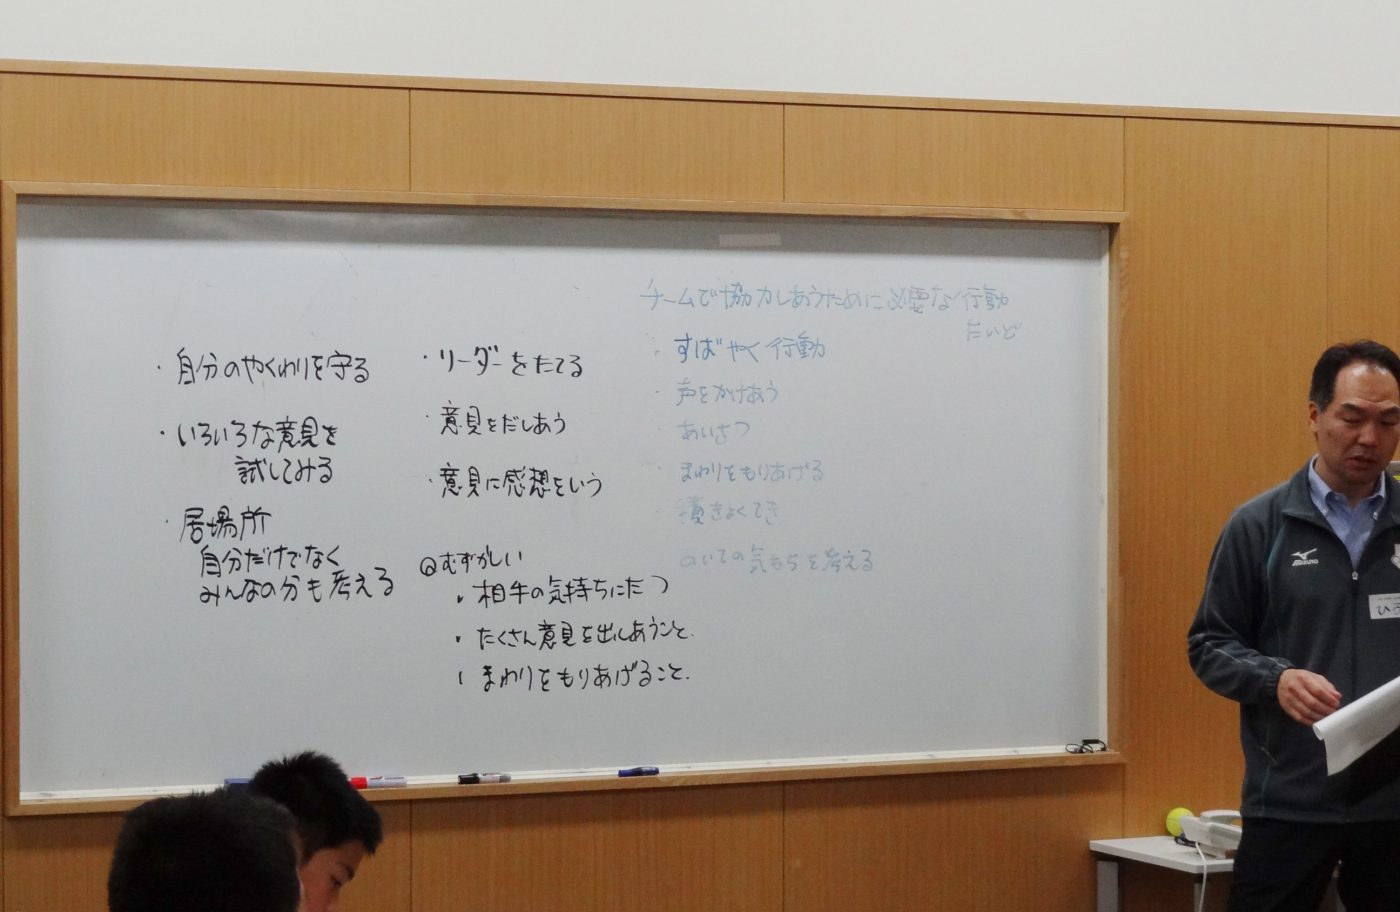 ・自分のやくわりを守る
・いろいろな意見を
試してみる
・居場所
自分だけでなく
みんなの分も考える
・リーダーをたてる
・意見をだしあう
・意見に感想をいう
◎むずかしい
・相手の気持ちにたつ
・たくさん意見を出しあうこと.
・まわりをもりあげること.
チームで協力しあうために必要な行動
たいど
・すばやく行動
・声をかけあう
・あいさつ
・まわりをもりあげる
・積きょくてき
の気もちを考える
MIZUNO